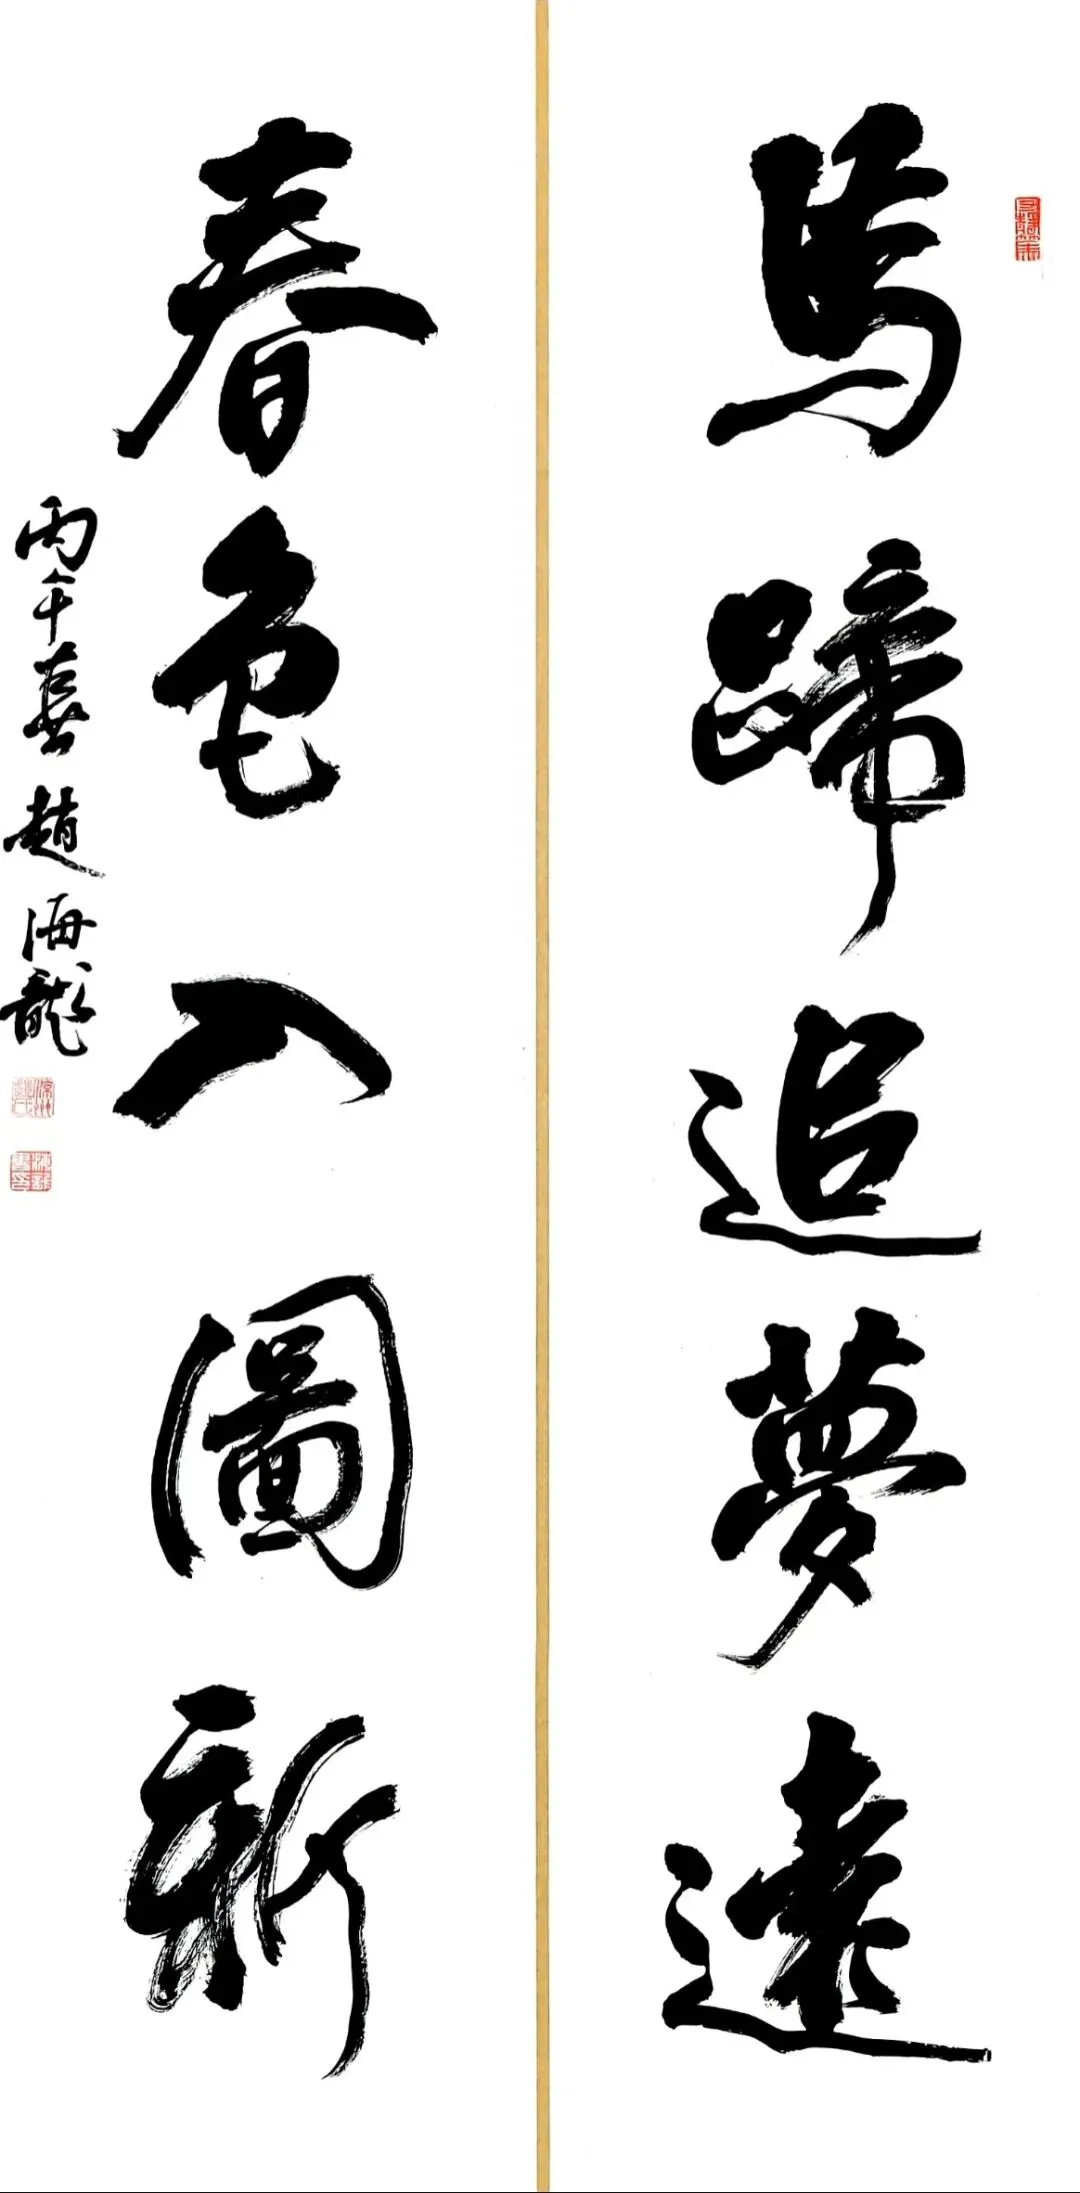 馬蹄追夢遠
春色入圖新
丙午喜趙海龍